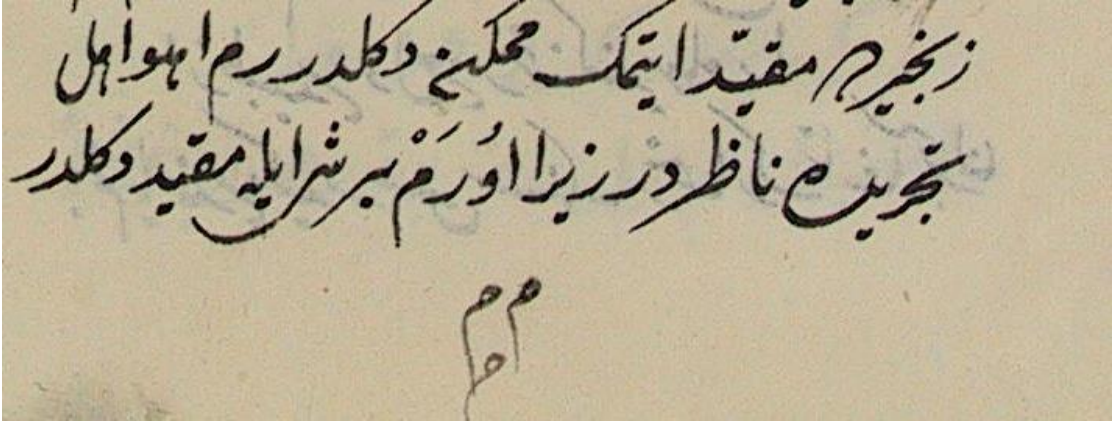 زنجیره مقیّد ایتمک ممکن دکلدر رم اهو اهل
تجریده ناظر در زیرا اُو رَمْ بر شرایله مقید دکلدر
م م
م